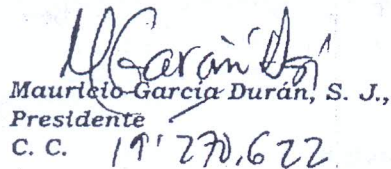 Mauricio García Durán, S. J.,
Presidente
C. C. 19'270,622